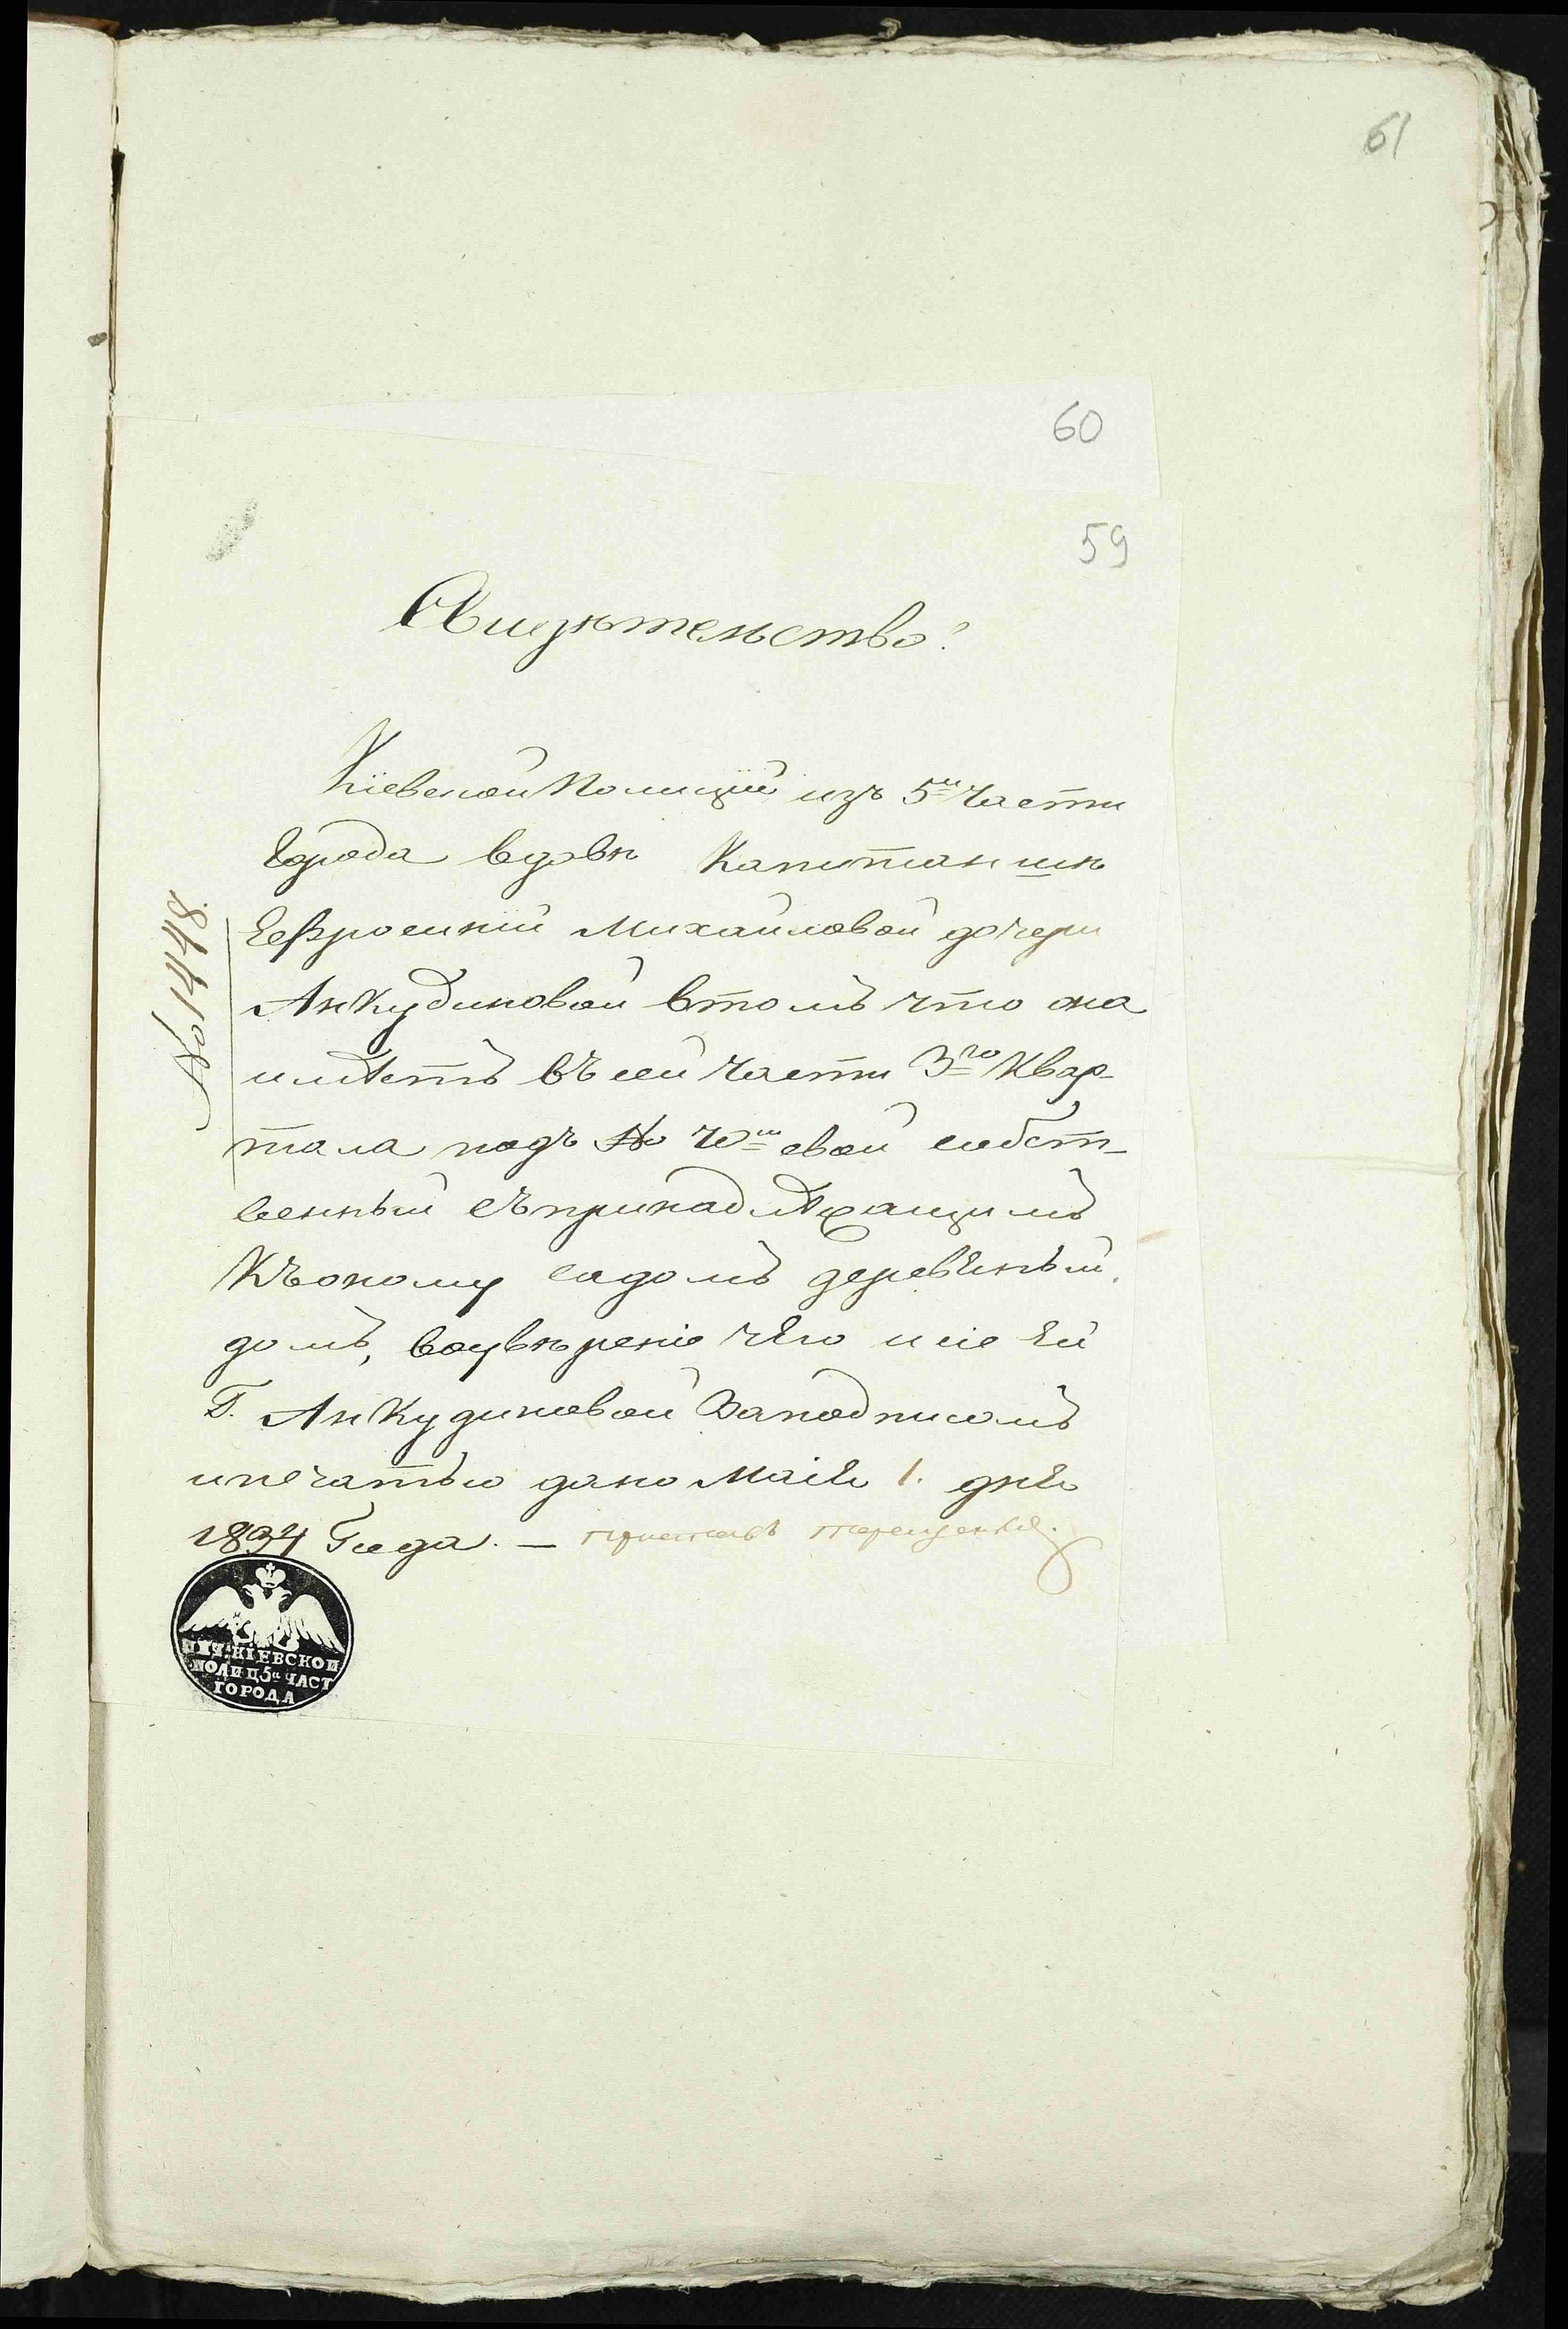 61
60
59
Свидѣтельство.
Кіевской Полиціи изъ 5й части
Города вдовѣ Капитаншѣ
Ефросиніи Михайловой дочери
Анкудиновой втомъ что она
имѣетъ въ сей части 3го Квар-
тала подъ № свой собст-
венный съпринадлѣжащимъ
Къоному садомъ деревѣный
домъ, воувѣреніе чего и сіе ей
Г. Анкудиновой Заподписомъ
ипечатью дано Маія 1. дня
1834 Года. — Приставъ Терещенко.
№ 1448.
КІЕВСКОЙ
ПОЛИЦ 5й ЧАСТ
ГОРОДА